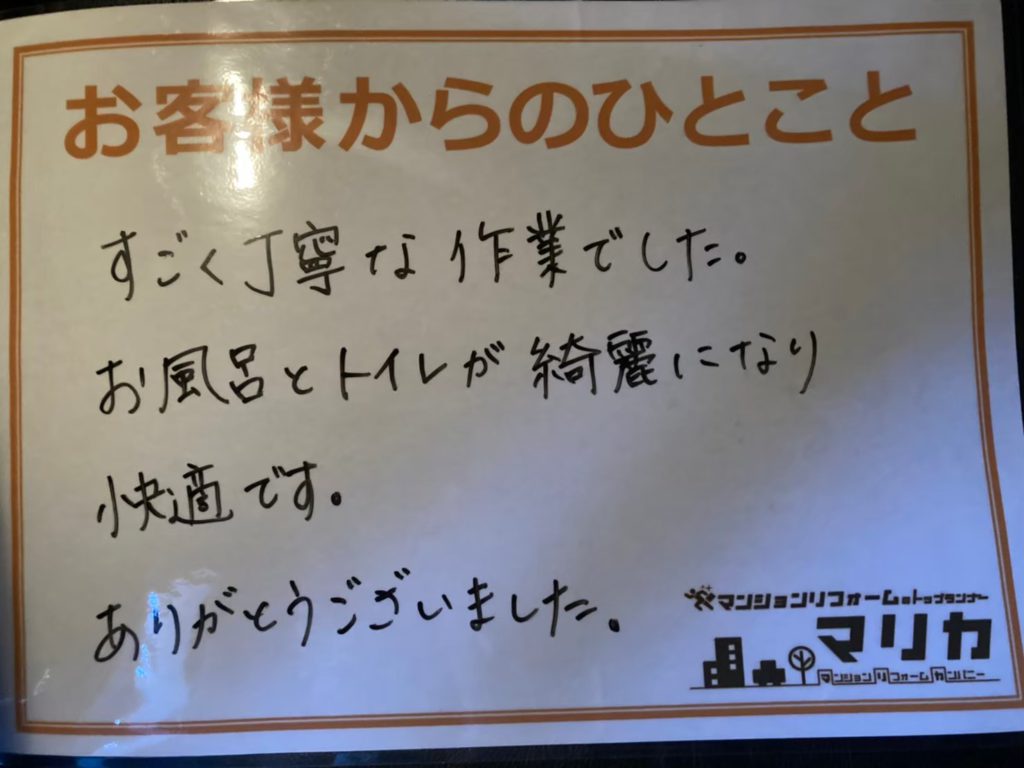 お客様からのひとこと
すごく丁寧な作業でした。
お風呂とトイレが綺麗になり
快適です。
ありがとうございました。
マンションリフォームのトップランナー
マリカ
マンションリフォームカンパニー